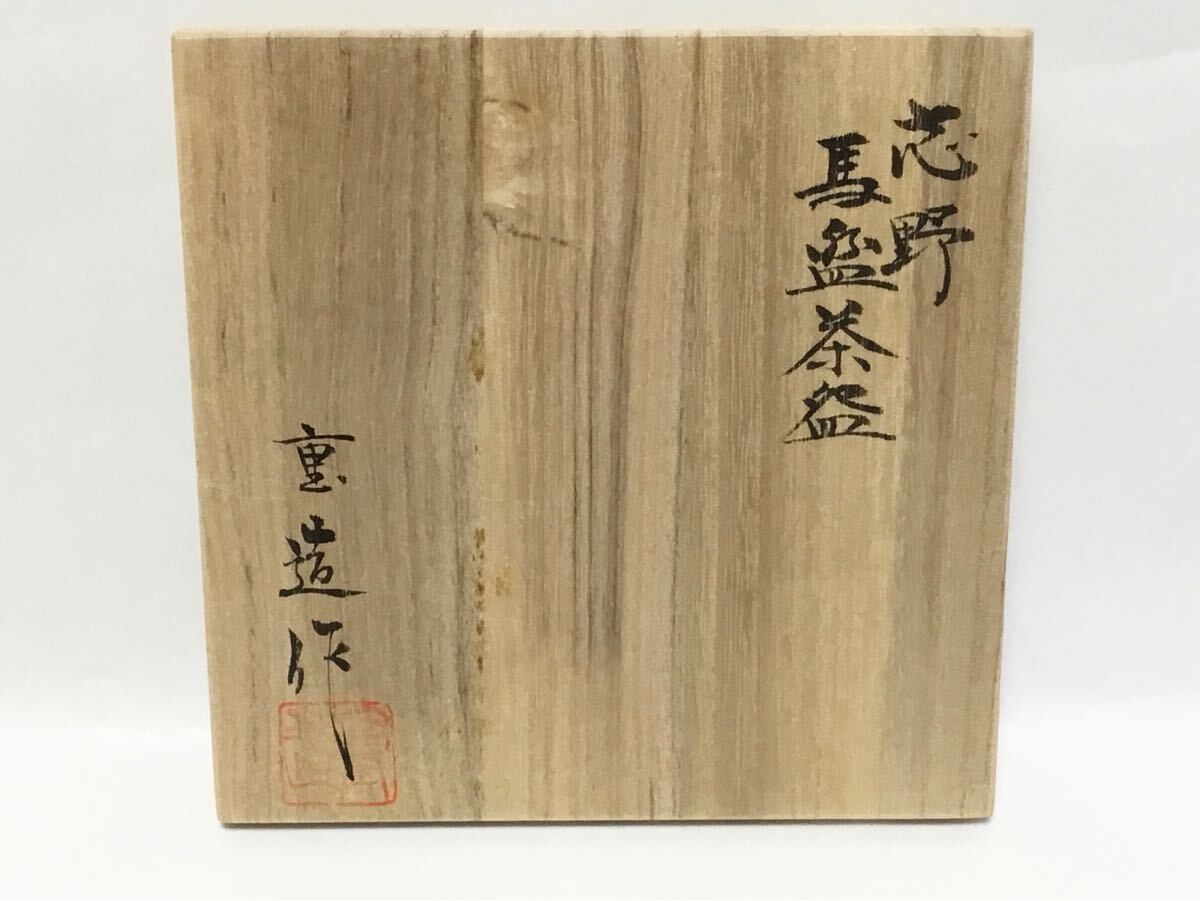 志野
馬盥茶盌
重造作